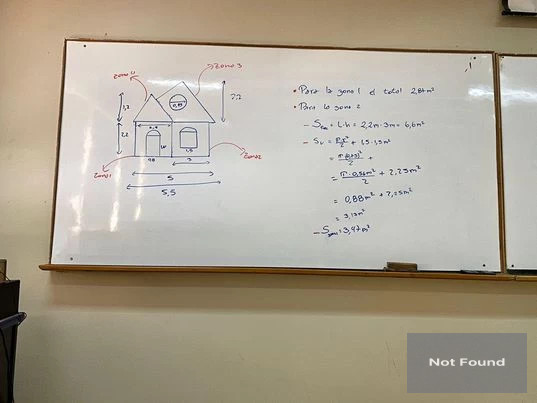 zona 4
zona 3
1,2
2,2
0,85
2,2
1,5
3
zona 1
zona 2
5
5,5
• Para la zona 1 el total 2,87m²
• Para la zona 2
= L·h = 2,2m·3m = 6,6m²
+ 1,5·1,5m²
= π·0,56m²/2 + 2,25m²
= 0,88m² + 2,25m²
= 3,13m²
= 3,47m²
Not Found